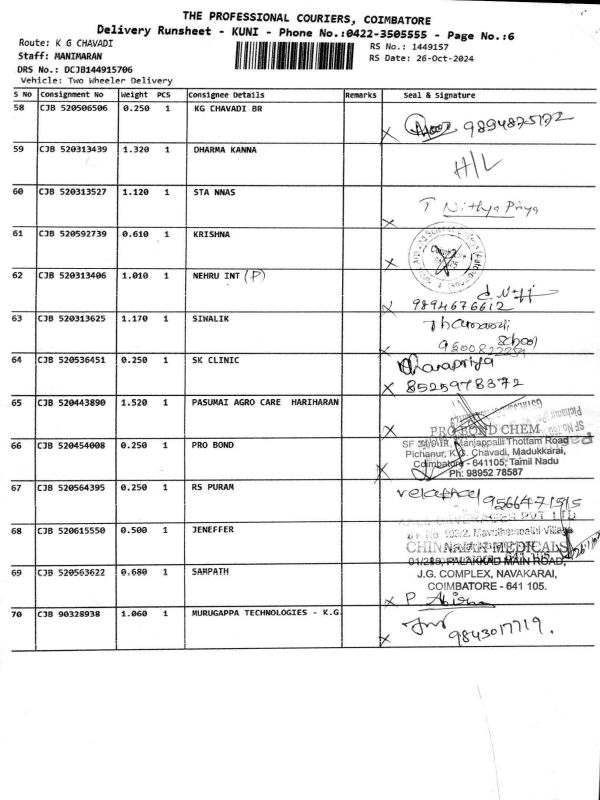 THE PROFESSIONAL COURIERS, COIMBATORE
Delivery Runsheet - KUNI - Phone No.:0422-3505555 - Page No.:6
Route: K G CHAVADI
RS No.: 1449157
Staff: MANIMARAN
RS Date: 26-Oct-2024
DRS No.: DCJB144915706
Vehicle: Two Wheeler Delivery
S No Consignment No Weight PCS Consignee Details Remarks Seal & Signature
58 CJB 520506506 0.250 1 KG CHAVADI BR
X 9894875172
59 CJB 520313439 1.320 1 DHARMA KANNA
H/L
60 CJB 520313527 1.120 1 STA NNAS
T Nithya Priya
X
61 CJB 520592739 0.610 1 KRISHNA
X
62 CJB 520313406 1.010 1 NEHRU INT (P)
X 9894676612
63 CJB 520313625 1.170 1 SIWALIK
School
X
64 CJB 520536451 0.250 1 SK CLINIC
X 8525978372
65 CJB 520443890 1.520 1 PASUMAI AGRO CARE HARIHARAN
X
PRO BOND CHEM
66 CJB 520454008 0.250 1 PRO BOND
Nanjappalli Thottam Road
Pichanur, K.G. Chavadi, Madukkarai,
Coimbatore - 641105, Tamil Nadu
X Ph: 98952 78587
67 CJB 520564395 0.250 1 RS PURAM
9566471515
68 CJB 520615550 0.500 1 JENEFFER
CHINNAMMA MEDICALS
69 CJB 520563622 0.680 1 SAMPATH
PALAKKAD MAIN ROAD,
J.G. COMPLEX, NAVAKARAI,
COIMBATORE - 641 105.
X P
70 CJB 90328938 1.060 1 MURUGAPPA TECHNOLOGIES - K.G.
X 9843017719.